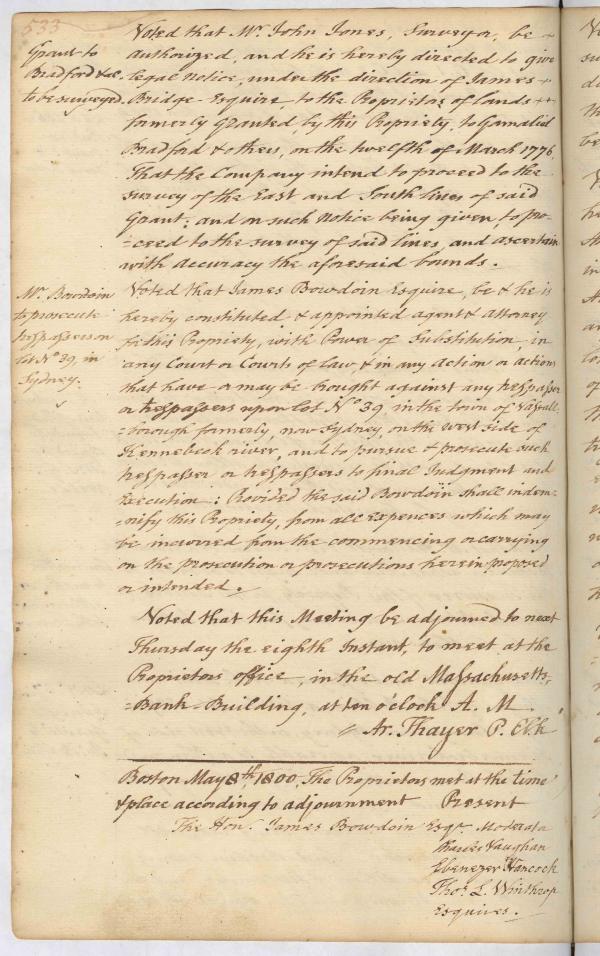 533
Voted that Mr. John Jones, Surveyor, be
authorized, and he is hereby directed to give
legal notice, under the direction of James
Bridge Esquire, to the Proprietors of lands
formerly Granted, by this Propriety, to Gamaliel
Bradford & others, on the twelfth of March 1776,
That the Company intend to proceed to the
survey of the East and South lines of said
Grant; and on such Notice being given, to pro-
=ceed to the survey of said lines, and ascertain
with accuracy the aforesaid bounds.
Grant to
Bradford &c.
to be surveyd.
Voted that James Bowdoin Esquire, be & he is
hereby constituted & appointed agent & attorney
for this Propriety, with Power of Substitution, in
any Court or Courts of Law, & in any Action or actions
that have or may be brought against any trespasser
or trespassers upon Lot No 39, in the town of Vassall-
=borough formerly, now Sydney, on the west side of
Kennebeck river, and to pursue & prosecute such
trespasser or trespassers to final Judgment and
Execution; Provided the said Bowdoin shall indem-
=nify this Propriety, from all Expences which may
be incurred from the commencing or carrying
on the prosecution or prosecutions herein proposed
or intended.
Mr. Bowdoin
to prosecute
trespassers on
lot No 39, in
Sydney.
Voted that this Meeting be adjourned to next
Thursday the eighth Instant, to meet at the
Proprietors office, in the old Massachusetts
=Bank=Building, at ten o'clock A. M.
Ar. Thayer P. Clk
Boston May 8th, 1800, The Proprietors met at the time
& place according to adjournment Present
The Hon. James Bowdoin Esqr. Moderator
Charles Vaughan
Ebenezer Hancock
Thos. L. Winthrop
Esquires.